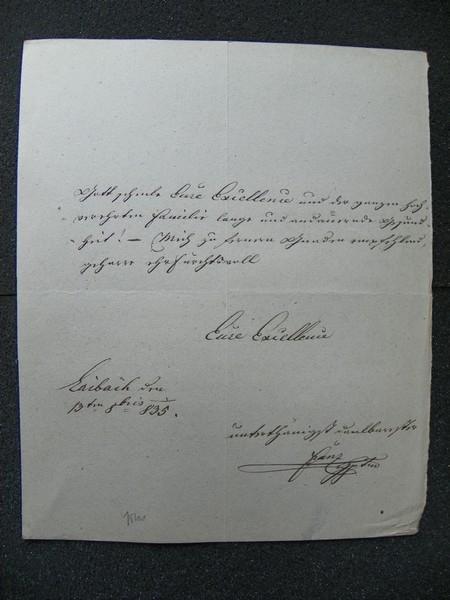 Gott schenke Eure Excellence und der ganzen hoch-
verehrten Familie lange und andauernde Gesund-
heit! – Mich zu fernern Gnaden empfehlend,
geharre ehrfurchtsvoll
Eure Excellence
Laibach den
13ten 8bris 835.
unterthänigst dankbarster
Franz